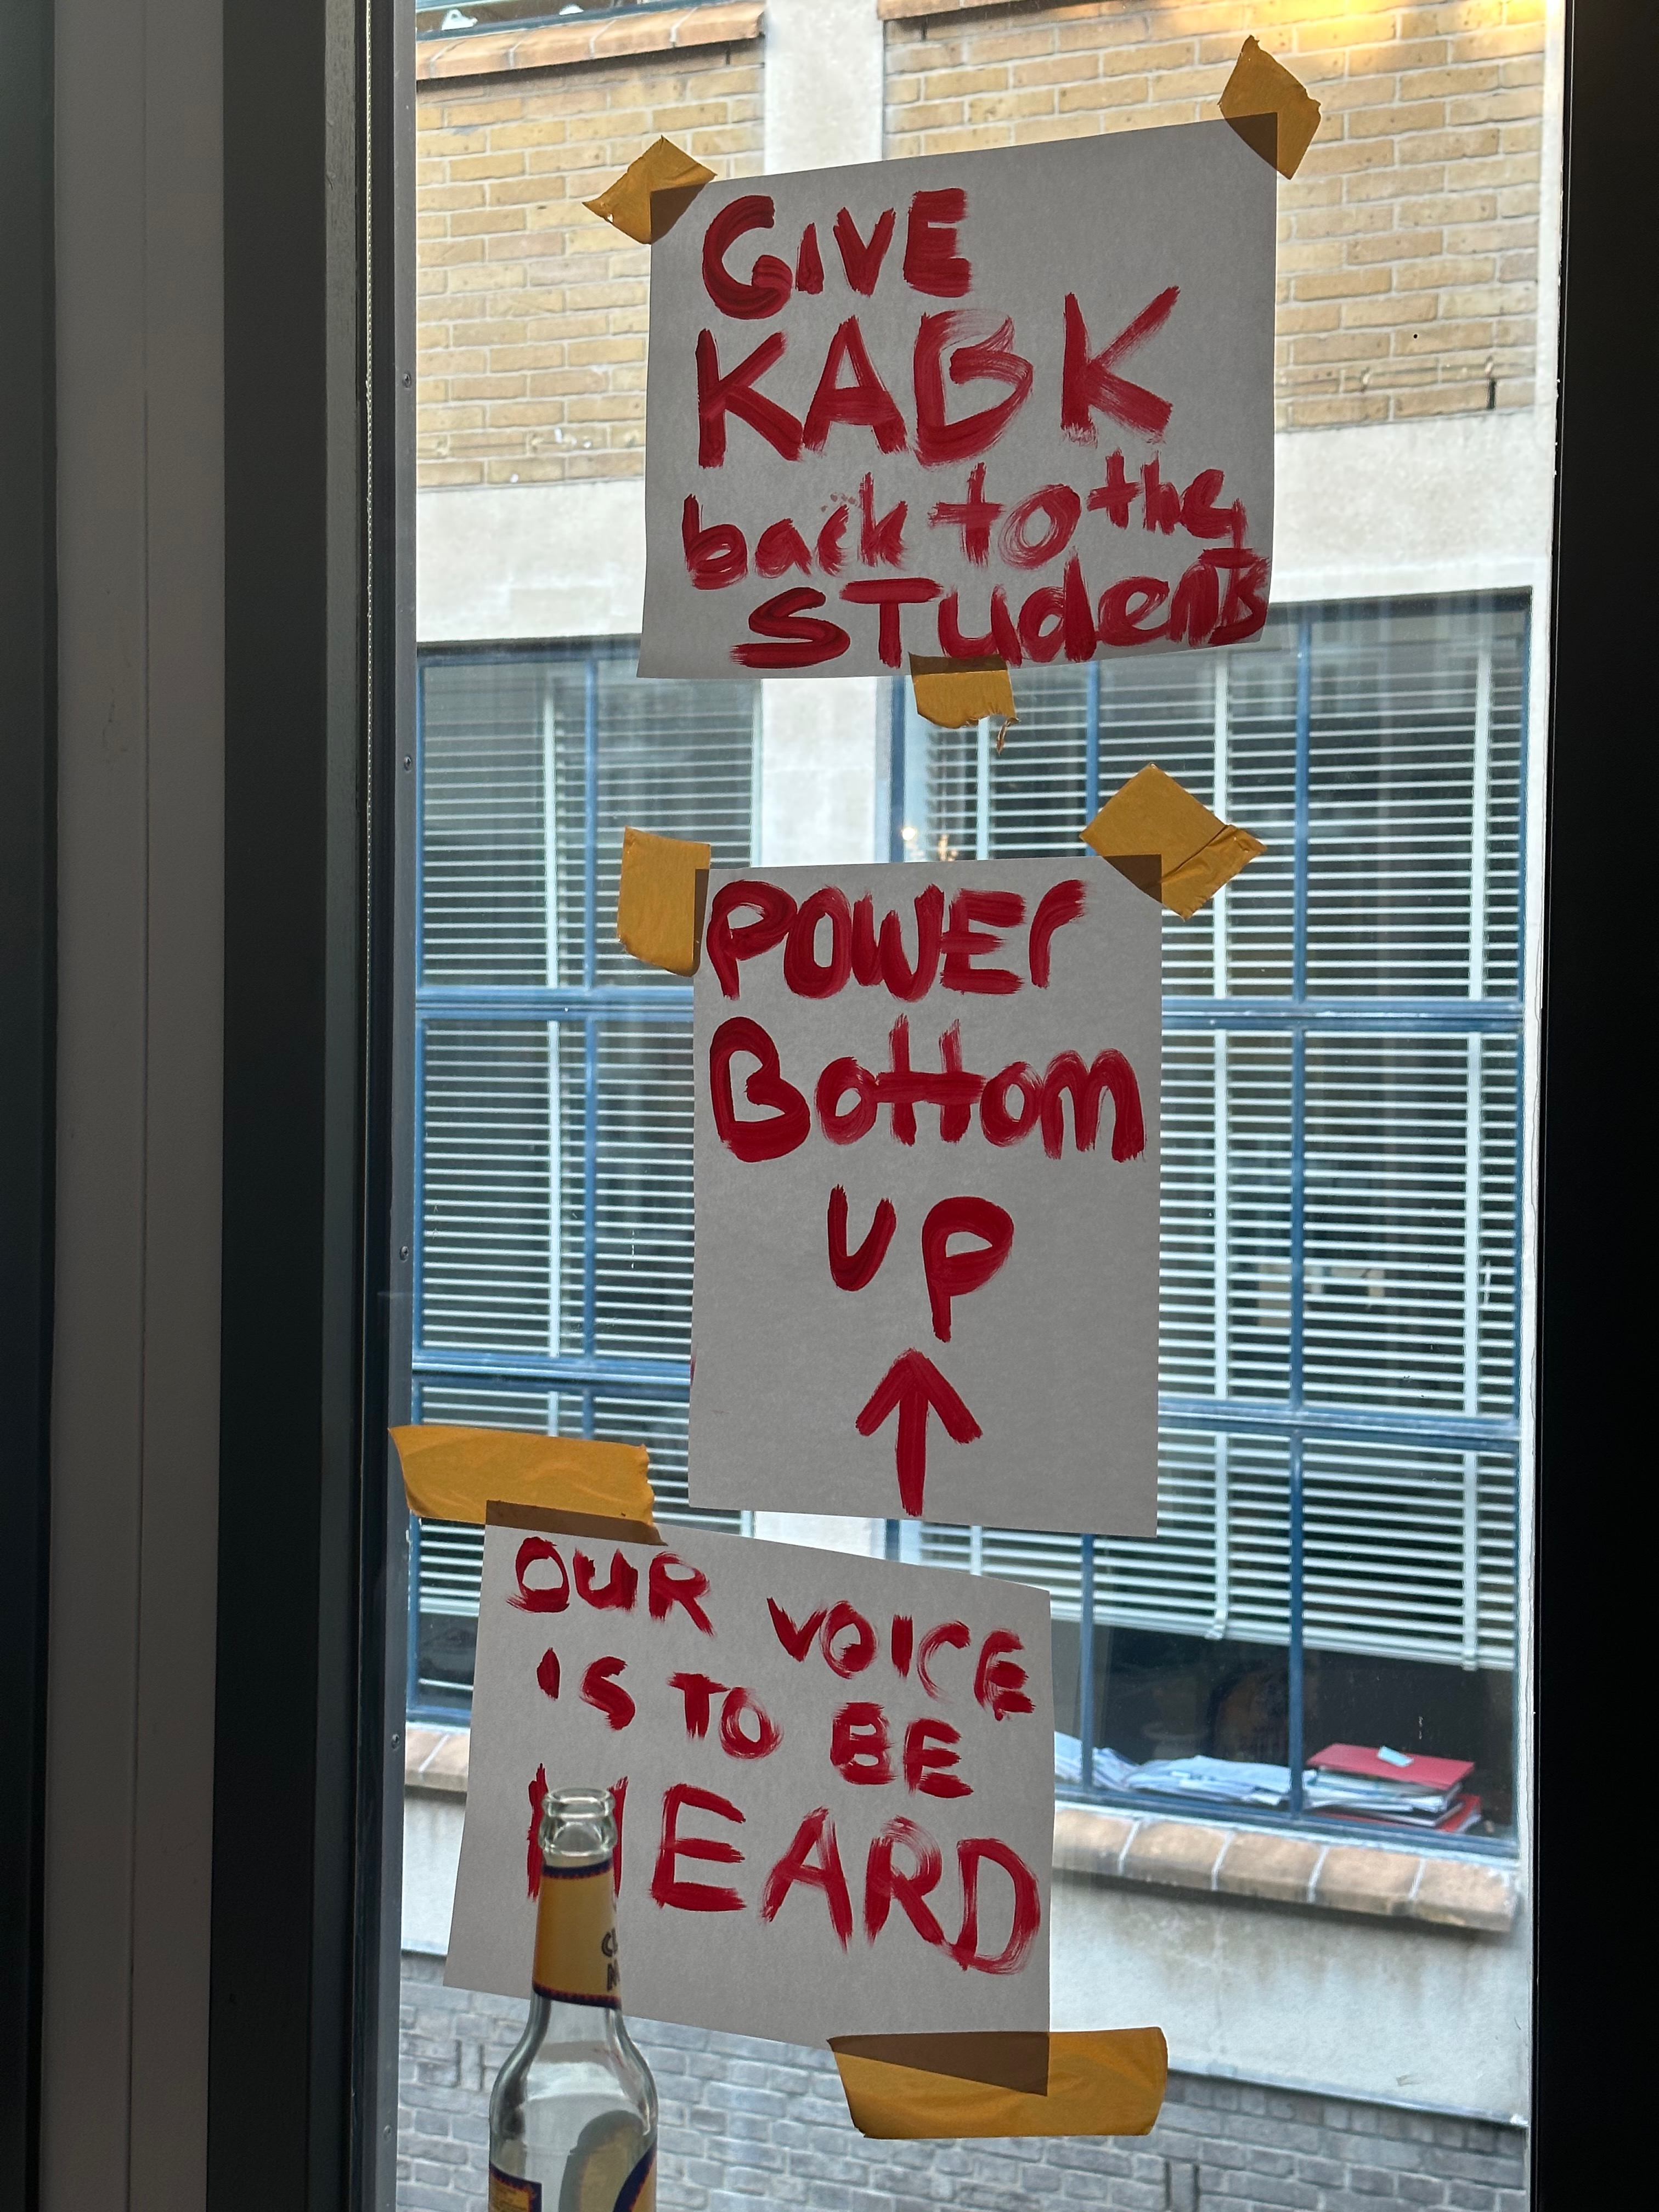 GIVE
KABK
back to the
STudents
POWEr
Bottom
UP
OUR VOICE
IS TO BE
HEARD